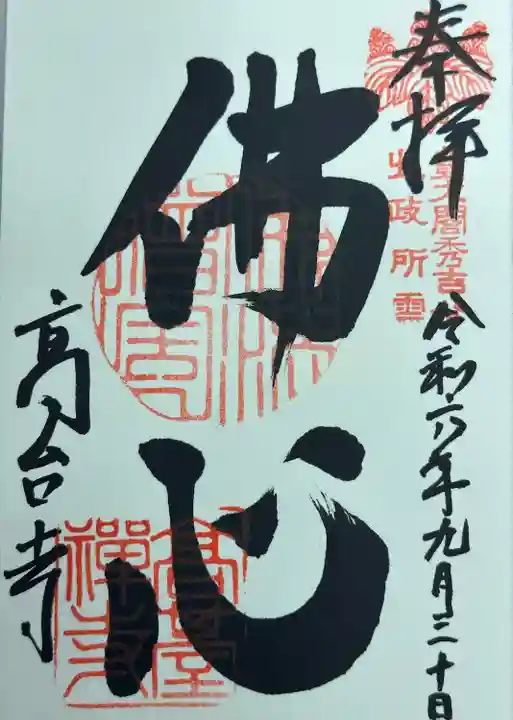 奉拝
令和六年九月二十日
豊太閤秀吉公
北政所霊
佛心
高台寺
高臺
禅寺